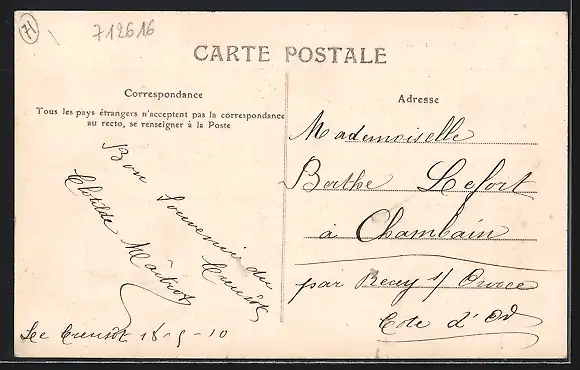 71
712616
CARTE POSTALE
Correspondance
Tous les pays étrangers n'acceptent pas la correspondance
au recto, se renseigner à la Poste
Bon Souvenir du
Creusot
Clotilde
Le Creusot 18-5-10
Adresse
Mademoiselle
Berthe Lefort
à Chambain
par Recey s/ Ource
Cote d'Or